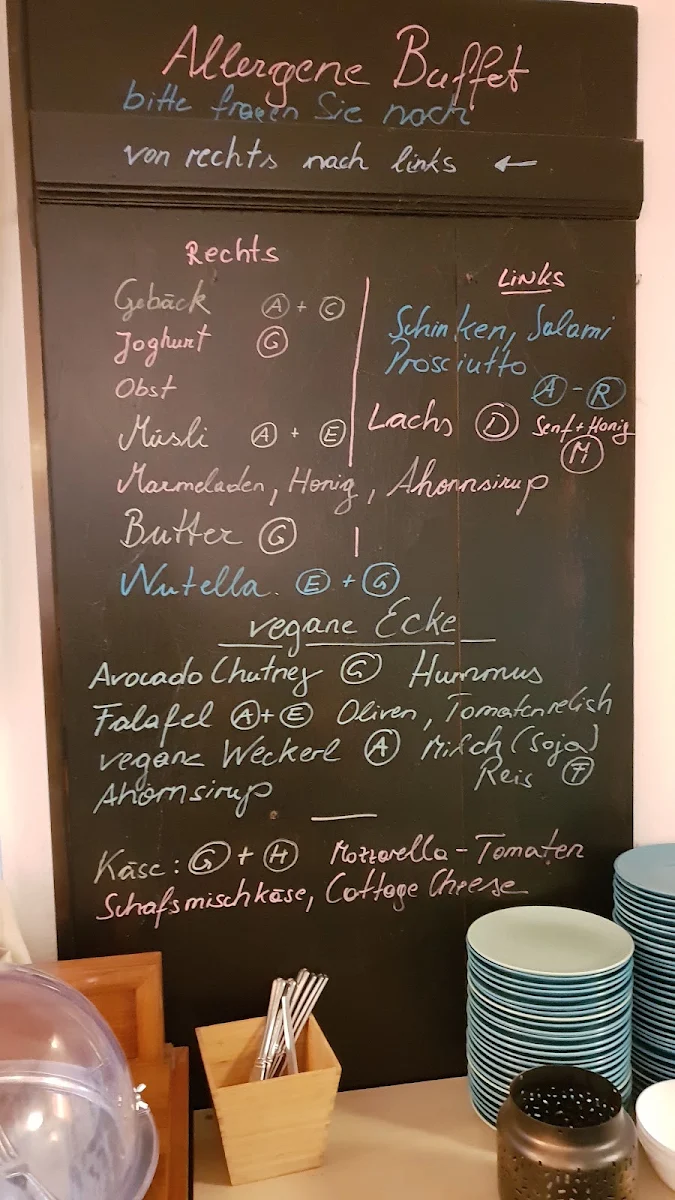 Allergene Buffet
bitte fragen Sie nach
von rechts nach links ←
Rechts
Gebäck A + C
Joghurt G
Obst
Müsli A + E
Links
Schinken, Salami
Prosciutto
A - R
Lachs D Senf + Honig
M
Marmeladen, Honig, Ahornsirup
Butter G
Nutella E + G
vegane Ecke
Avocado Chutney G Hummus
Falafel A + E Oliven, Tomatenrelish
vegane Weckerl A Milch (Soja)
Reis F
Ahornsirup
Käse: G + H Mozzarella - Tomaten
Schafsmischkäse, Cottage Cheese